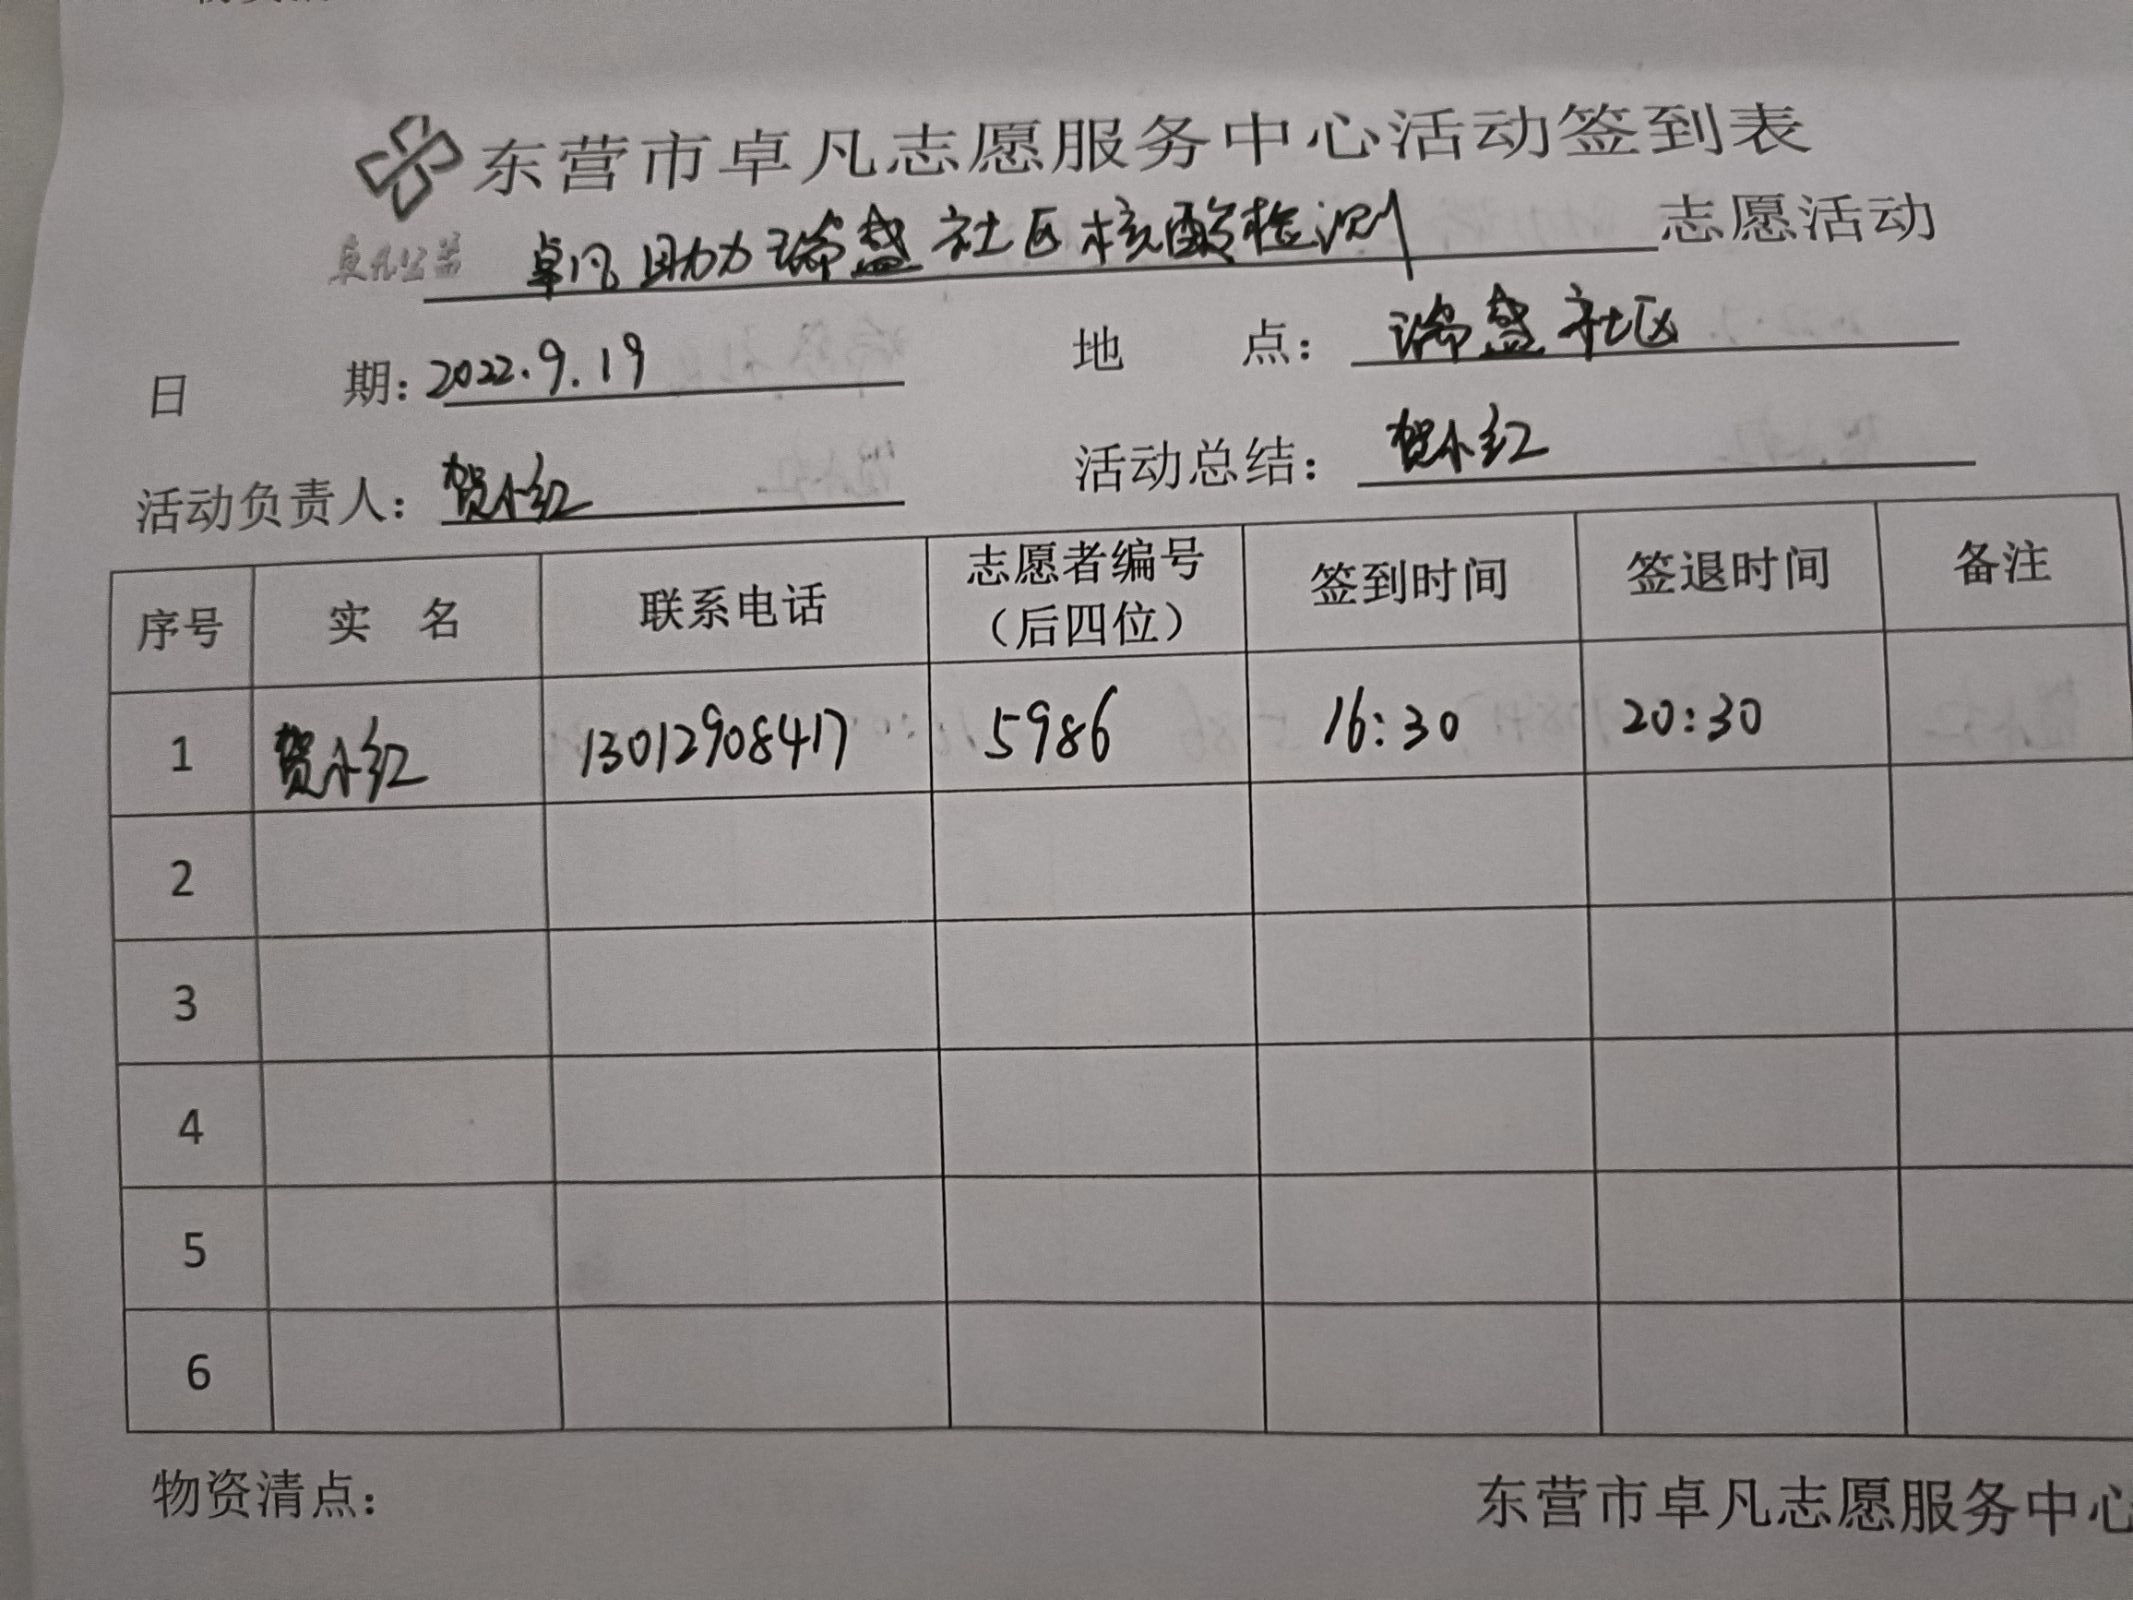 东营市卓凡志愿服务中心活动签到表
卓凡公益 卓凡助力瑞盛社区核酸检测 志愿活动
日 期：2022.9.19 地 点：瑞盛社区
活动负责人：贺小红 活动总结：贺小红
序号 实 名 联系电话 志愿者编号（后四位） 签到时间 签退时间 备注
1 贺小红 13012908417 5986 16:30 20:30
2
3
4
5
6
物资清点： 东营市卓凡志愿服务中心